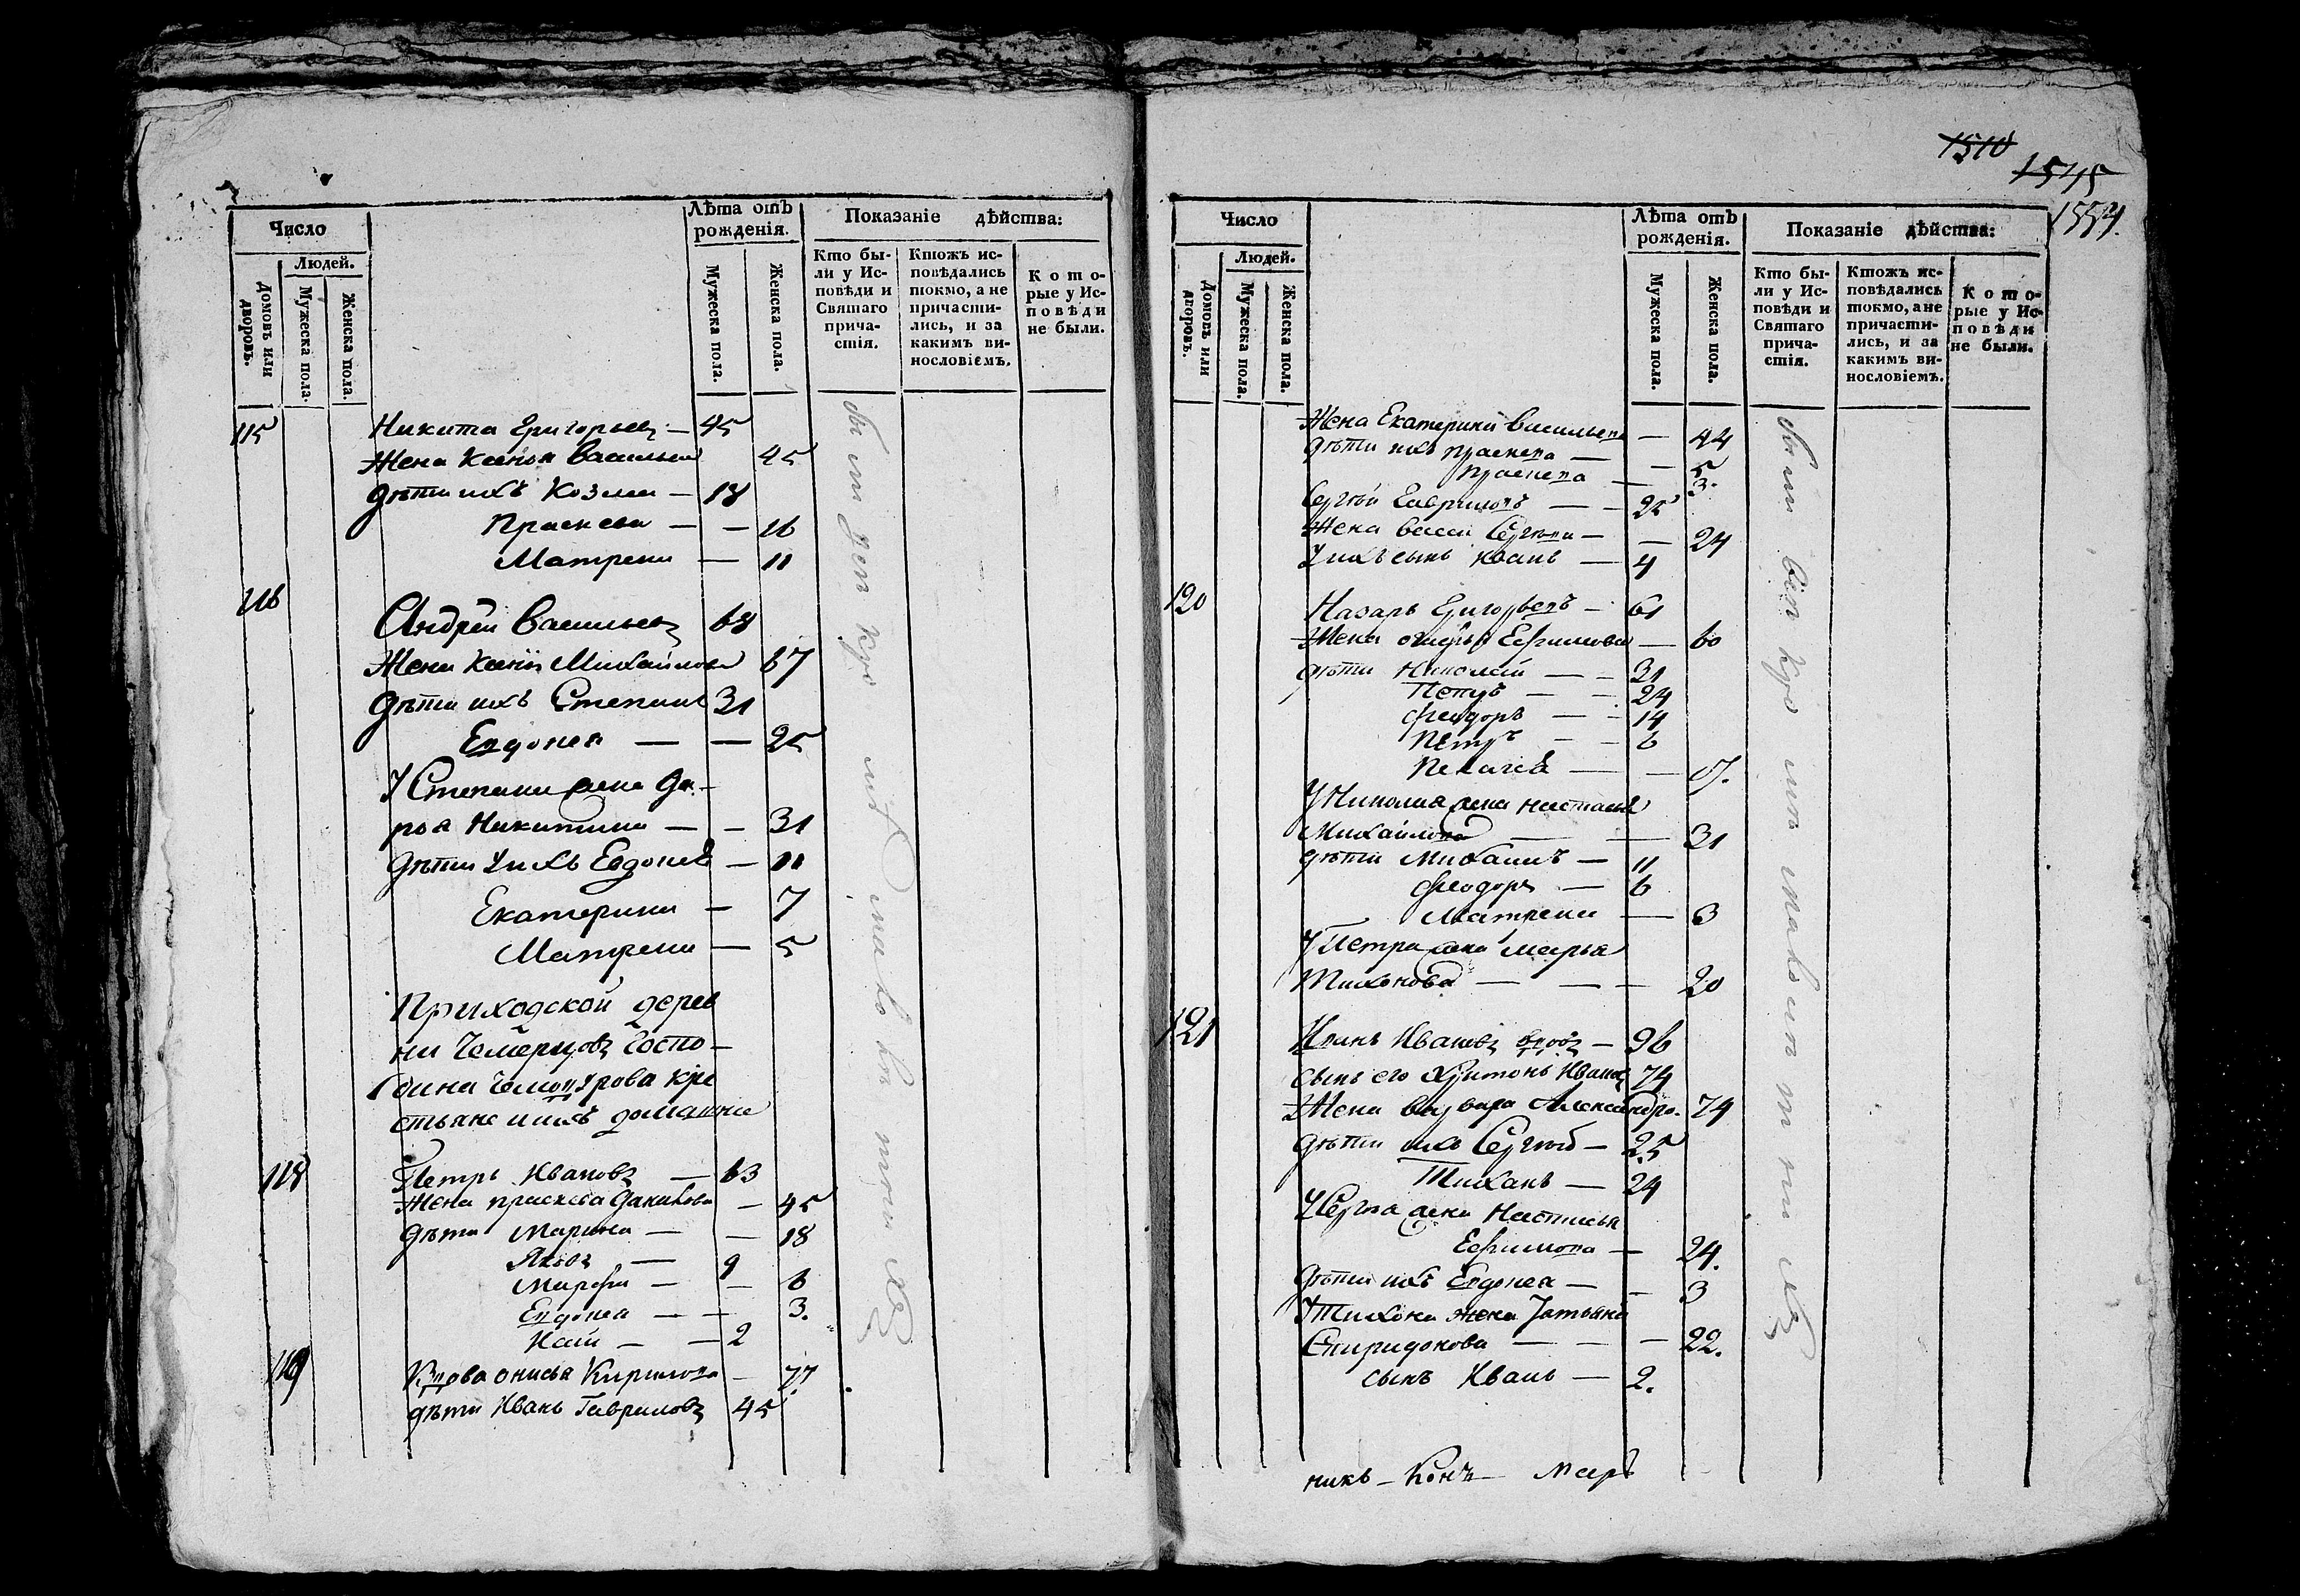 Число
Людей.
Домовъ или дворовъ.
Мужеска пола.
Женска пола.
Лѣта отъ рожденія.
Мужеска пола.
Женска пола.
Показаніе дѣйства:
Кто бы-
ли у Ис-
повѣди и
Святаго
прича-
стія.
Ктожъ ис-
повѣдались
токмо, а не
причасти-
лись, и за
какимъ ви-
нословіемъ.
Кото-
рые у Ис-
повѣди
не были.
115 Никита Григорьевъ — 45
Жена Ксенья Васильева 45
Дѣти ихъ Козма — 18
Прасковья — — 16
Матрена — 11
116 Андрей Васильевъ 68
Жена Ксенія Михайлова 67
Дѣти ихъ Степанъ 31
Евдокея — — 25
У Степана жена Да-
рья Никитина — — 31
Дѣти у ихъ Евдокея — 11
Екатерина — 7
Матрена — 5
Приходской дерев
ни Чемерцовъ Госпо-
дина кре
стьяне и ихъ домашніе
118 Петръ Ивановъ — 63
Жена Прасковья — 45
Дѣти Марина — — 18
Яковъ — 9
Марфа — — 6
Евдокея — — 3.
— — 2
119 Вдова Онисья Кирилова — 77
дѣти Иванъ Гавриловъ 45
1510
1545
1554.
Число
Людей.
Домовъ или дворовъ.
Мужеска пола.
Женска пола.
Лѣта отъ рожденія.
Мужеска пола.
Женска пола.
Показаніе дѣйства:
Кто бы-
ли у Ис-
повѣди и
Святаго
прича-
стія.
Ктожъ ис-
повѣдались
токмо, а не
причасти-
лись, и за
какимъ ви-
нословіемъ.
Кото-
рые у Ис-
повѣди
не были.
Жена Екатерина Васильева — 44
Дѣти ихъ Прасковья — — 5
Прасковья — 3.
Сергѣй Гавриловъ — — 25
Жена Васса Сергѣева — — 24
У ихъ сынъ Иванъ — 4
120 Назаръ Григорьевъ — 61
Жена Ефимова — 60
дѣти Николай — — 31
Петръ — — 24
Феодоръ — — 14
Петръ — — 6
Пелагея — — 17.
У Николая жена Настасья
Михайлова — — 31
дѣти Михаилъ — 11
Феодоръ — 6
Матрена — 3
У Петра жена Марья
Тихонова — — — 20
121 Иванъ Ивановъ вдовъ — 96
Сынъ его Харитонъ Ивановъ 74
Жена Варвара Александро. 74
дѣти ихъ Сергѣй — 25
Тиханъ — 24
У Сергѣя жена Настасья
Ефимова — 24.
Дѣти ихъ Евдокея — — 3
У Тихона жена Татьяна
Спиридонова — — — 22.
сынъ Иванъ — 2.
никъ — Конъ —